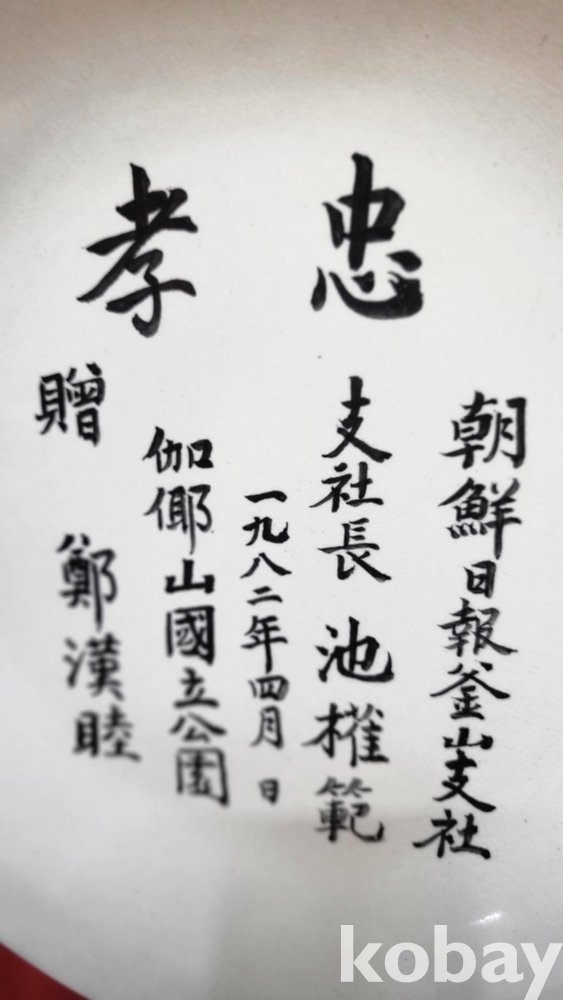 忠孝
朝鮮日報釜山支社
支社長 池榷範
一九八二年四月 日
伽倻山國立公園
贈 鄭漢睦
kobay